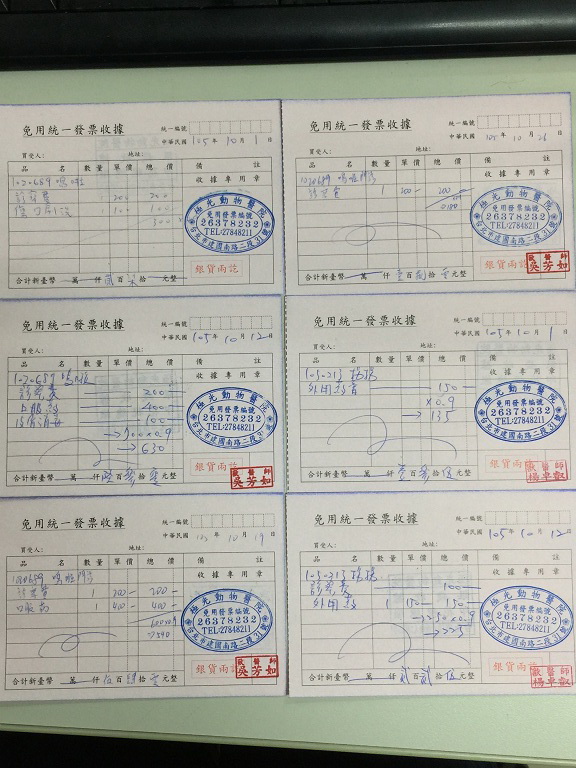 免用統一發票收據
統一編號
中華民國 105年10月1日
買受人:
地址:
品名 數量 單價 總價 備註
收據專用章
診察費 200 200
極光動物醫院
免用發票編號
26378232
TEL:27848211
台北市建國南路二段31號
銀貨兩訖
合計新臺幣 萬 仟 佰 拾 元整
免用統一發票收據
統一編號
中華民國 105年10月26日
買受人:
地址:
品名 數量 單價 總價 備註
收據專用章
診察費 1 200- 200-
極光動物醫院
免用發票編號
26378232
TEL:27848211
台北市建國南路二段31號
銀貨兩訖
獸醫師
吳芳如
合計新臺幣 萬 仟壹百捌拾零元整
免用統一發票收據
統一編號
中華民國 105年10月12日
買受人:
地址:
品名 數量 單價 總價 備註
1020689
收據專用章
診察費 200-
口服藥 400-
100-
→700×0.9
→630
極光動物醫院
免用發票編號
26378232
TEL:27848211
台北市建國南路二段31號
銀貨兩訖
獸醫師
吳芳如
合計新臺幣 萬 仟陸百參拾零元整
免用統一發票收據
統一編號
中華民國 105年10月1日
買受人:
地址:
品名 數量 單價 總價 備註
1050213
收據專用章
外用藥膏 150-
×0.9
→135
極光動物醫院
免用發票編號
26378232
TEL:27848211
台北市建國南路二段31號
銀貨兩訖
獸醫師
楊卓叡
合計新臺幣 萬 仟壹百參拾伍元整
免用統一發票收據
統一編號
中華民國 105年10月19日
買受人:
地址:
品名 數量 單價 總價 備註
1020689
收據專用章
診察費 1 200- 200-
口服藥 1 400- 400-
600×0.9
=540
極光動物醫院
免用發票編號
26378232
TEL:27848211
台北市建國南路二段31號
銀貨兩訖
獸醫師
吳芳如
合計新臺幣 萬 仟伍百肆拾零元整
免用統一發票收據
統一編號
中華民國 105年10月12日
買受人:
地址:
品名 數量 單價 總價 備註
1050213
收據專用章
診察費 100-
外用藥 1 150- 150-
→250×0.9
→225
極光動物醫院
免用發票編號
26378232
TEL:27848211
台北市建國南路二段31號
銀貨兩訖
獸醫師
楊卓叡
合計新臺幣 萬 仟貳百貳拾伍元整